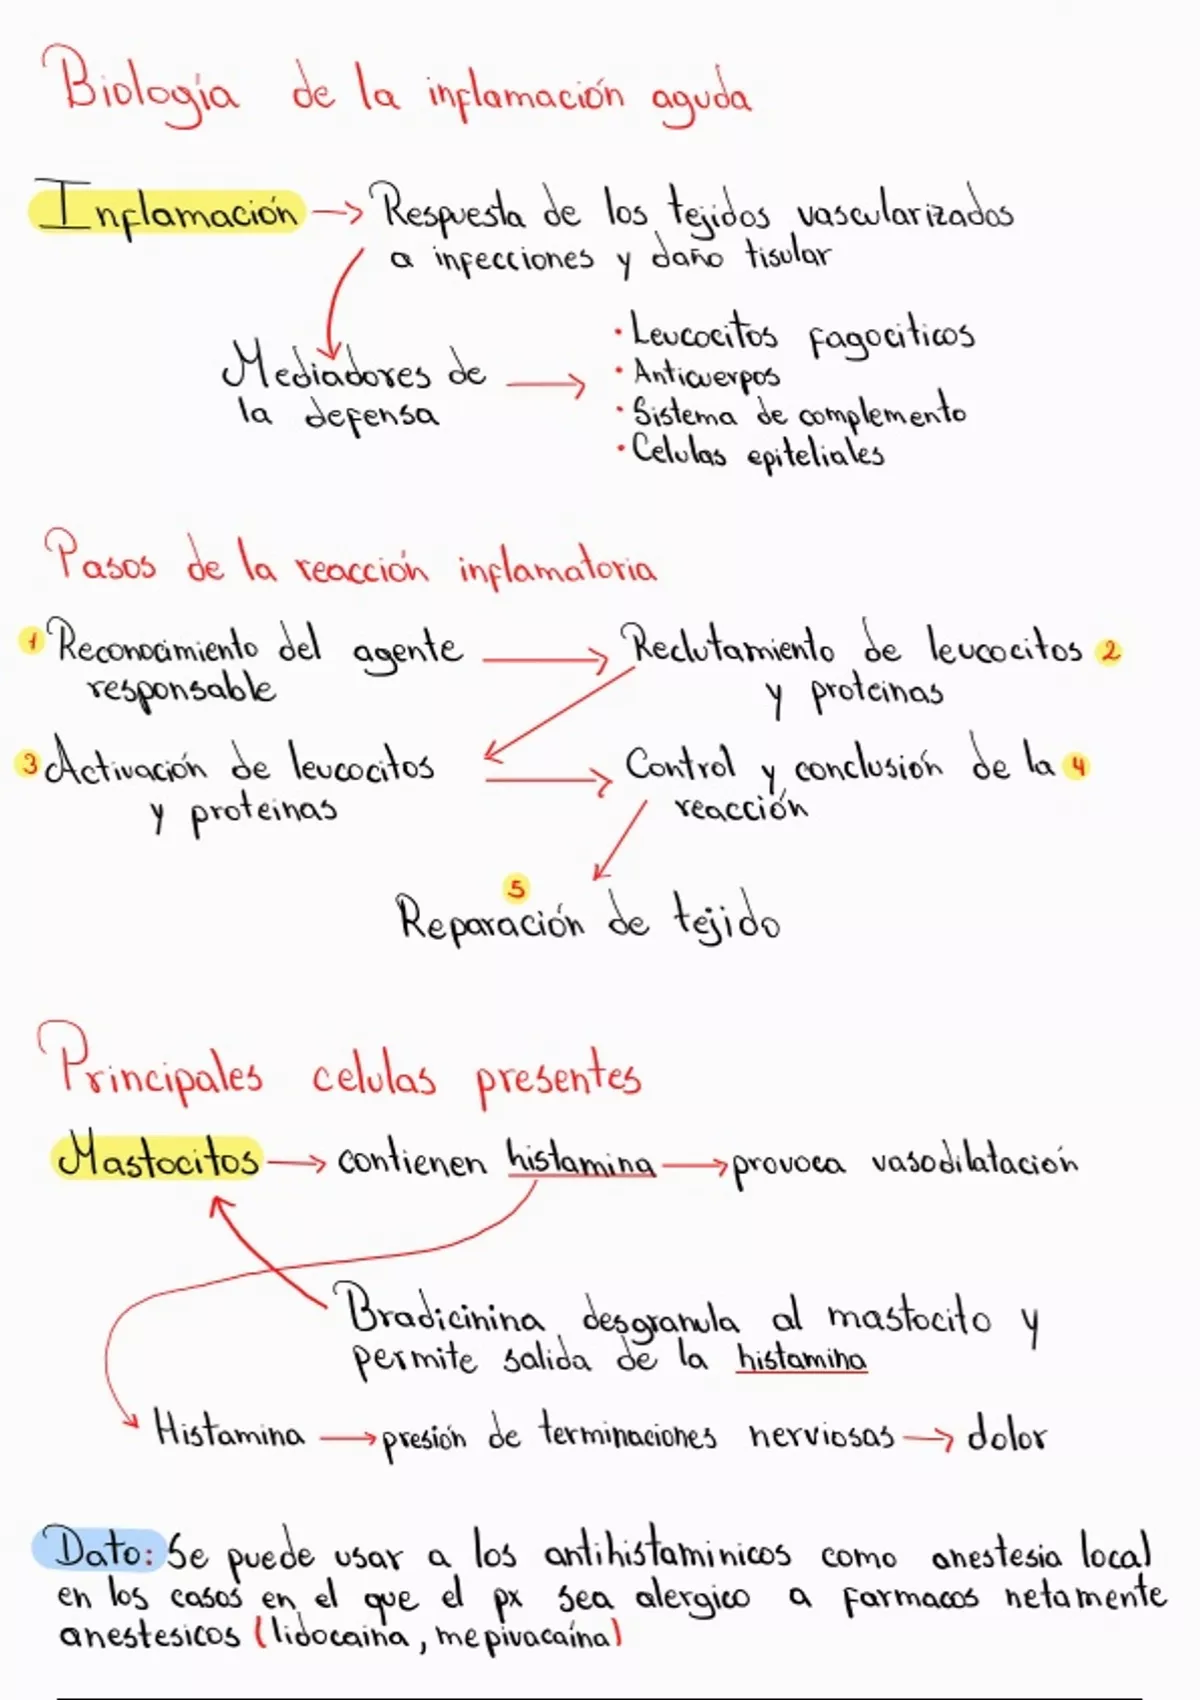 Biología de la inflamación aguda
Inflamación → Respuesta de los tejidos vascularizados
a infecciones y daño tisular
Mediadores de → • Leucocitos fagociticos
la defensa • Anticuerpos
• Sistema de complemento
• Celulas epiteliales
Pasos de la reacción inflamatoria
1 Reconocimiento del agente → Reclutamiento de leucocitos 2
responsable y proteinas
3 Activación de leucocitos → Control y conclusión de la 4
y proteinas reacción
5
Reparación de tejido
Principales celulas presentes
Mastocitos → contienen histamina → provoca vasodilatación
Bradicinina desgranula al mastocito y
permite salida de la histamina
Histamina → presión de terminaciones nerviosas → dolor
Dato: Se puede usar a los antihistaminicos como anestesia local
en los casos en el que el px sea alergico a farmacos netamente
anestesicos (lidocaina, mepivacaína)